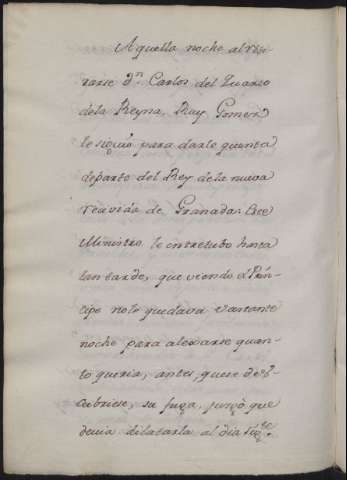 Aquella noche al reti-
rarse Dn. Carlos del Quarto
dela Reyna, Ruy Gomez
le siguió para darle quenta
departe del Rey dela nueva
revivida de Granada. Este
Ministro le entretubo hasta
tan tarde, que viendo el Prin-
cipe nole quedava vastante
noche para alexarse quan-
to queria, antes quese des-
cubriese, su fuga, juzgò que
devia dilatarla al dia sigte.